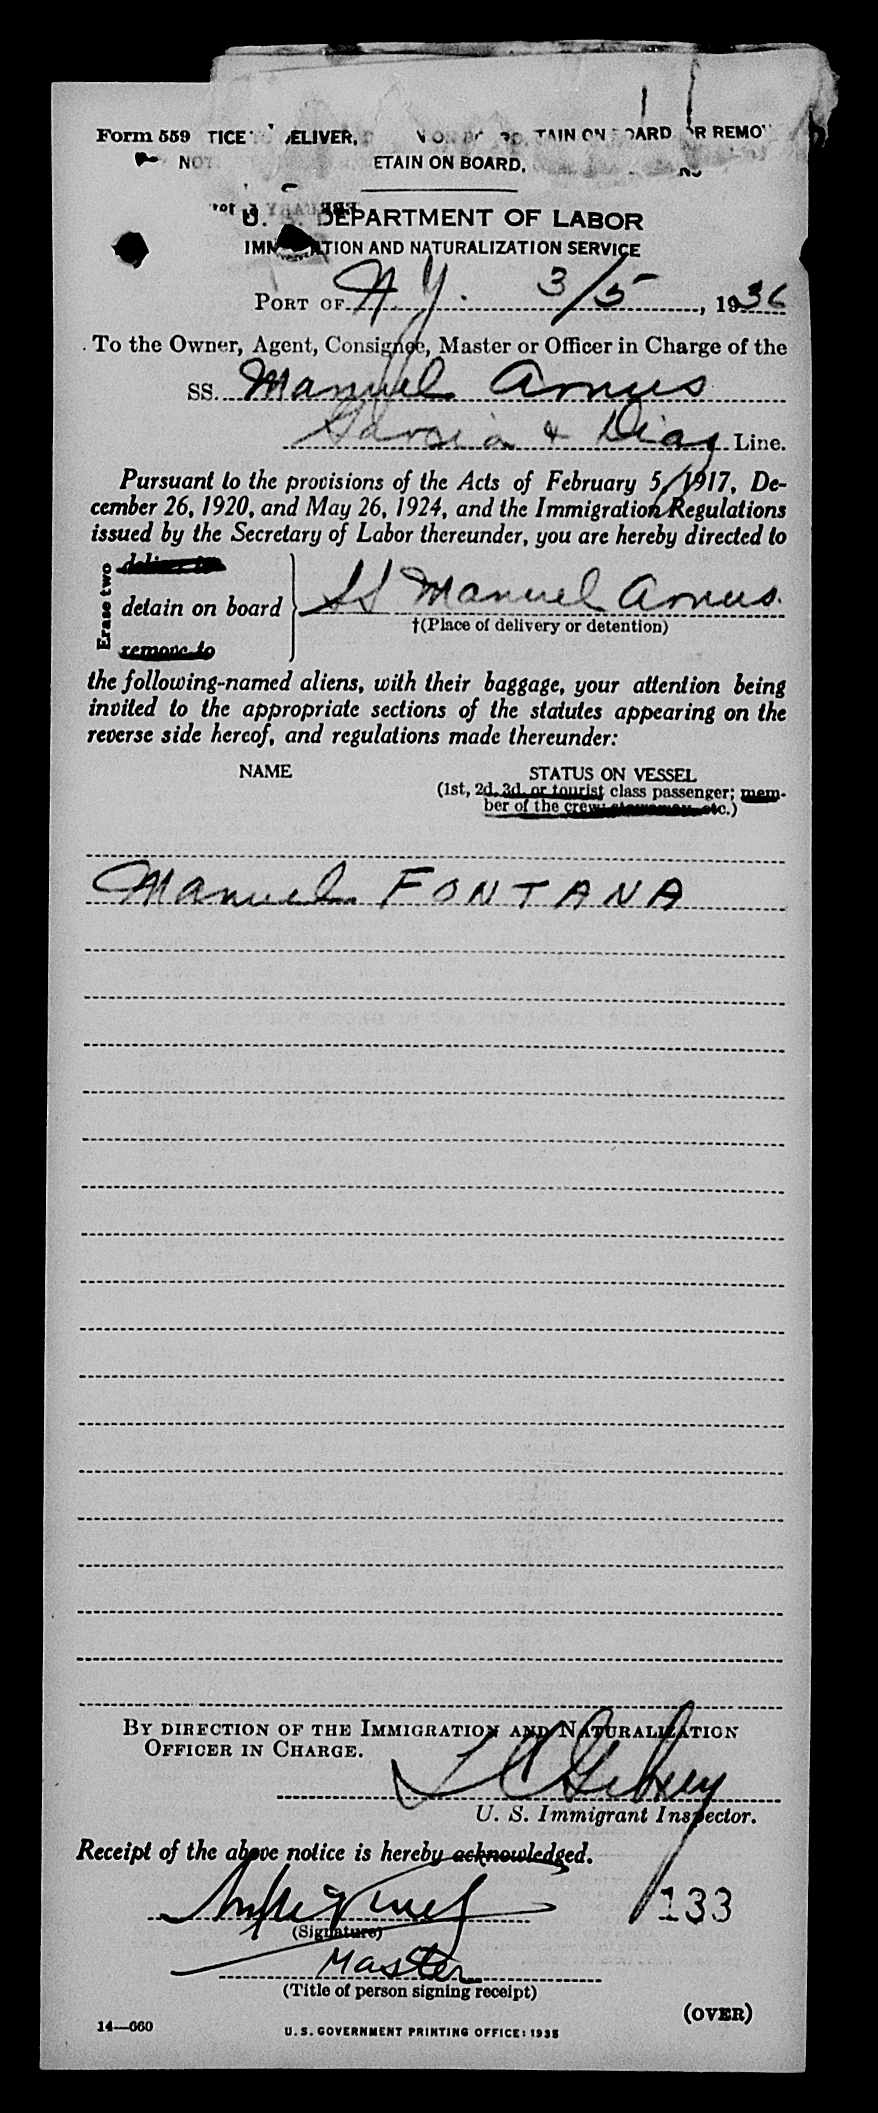 Form 559 TICE ELIVER, TAIN ON BOARD OR REMO
NOT ETAIN ON BOARD,
U. S. DEPARTMENT OF LABOR
IMMIGRATION AND NATURALIZATION SERVICE
PORT OF N.Y. 3/5, 1936
To the Owner, Agent, Consignee, Master or Officer in Charge of the
SS. Manuel Arnus
Garcia & Diaz Line.
Pursuant to the provisions of the Acts of February 5, 1917, De-
cember 26, 1920, and May 26, 1924, and the Immigration Regulations
issued by the Secretary of Labor thereunder, you are hereby directed to
Erase two
deliver to
detain on board SS Manuel Arnus.
†(Place of delivery or detention)
remove to
the following-named aliens, with their baggage, your attention being
invited to the appropriate sections of the statutes appearing on the
reverse side hereof, and regulations made thereunder:
NAME STATUS ON VESSEL
(1st, 2d, 3d, or tourist class passenger; mem-
ber of the crew; stowaway, etc.)
Manuel FONTANA
BY DIRECTION OF THE IMMIGRATION AND NATURALIZATION
OFFICER IN CHARGE.
U. S. Immigrant Inspector.
Receipt of the above notice is hereby acknowledged.
133
(Signature)
Master
(Title of person signing receipt)
(OVER)
14—660 U. S. GOVERNMENT PRINTING OFFICE: 1935